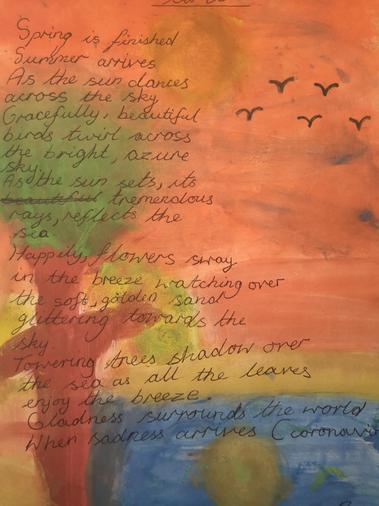 Spring is finished
Summer arrives
As the sun dances
across the sky
Gracefully, beautiful
birds twirl across
the bright, azure
sky.
As the sun sets, its
beautiful tremendous
rays, reflects the
sea
Happily, flowers sway
in the breeze watching over
the soft, golden sand
glittering towards the
sky.
Towering trees shadow over
the sea as all the leaves
enjoy the breeze.
Gladness surrounds the world
When sadness arrives